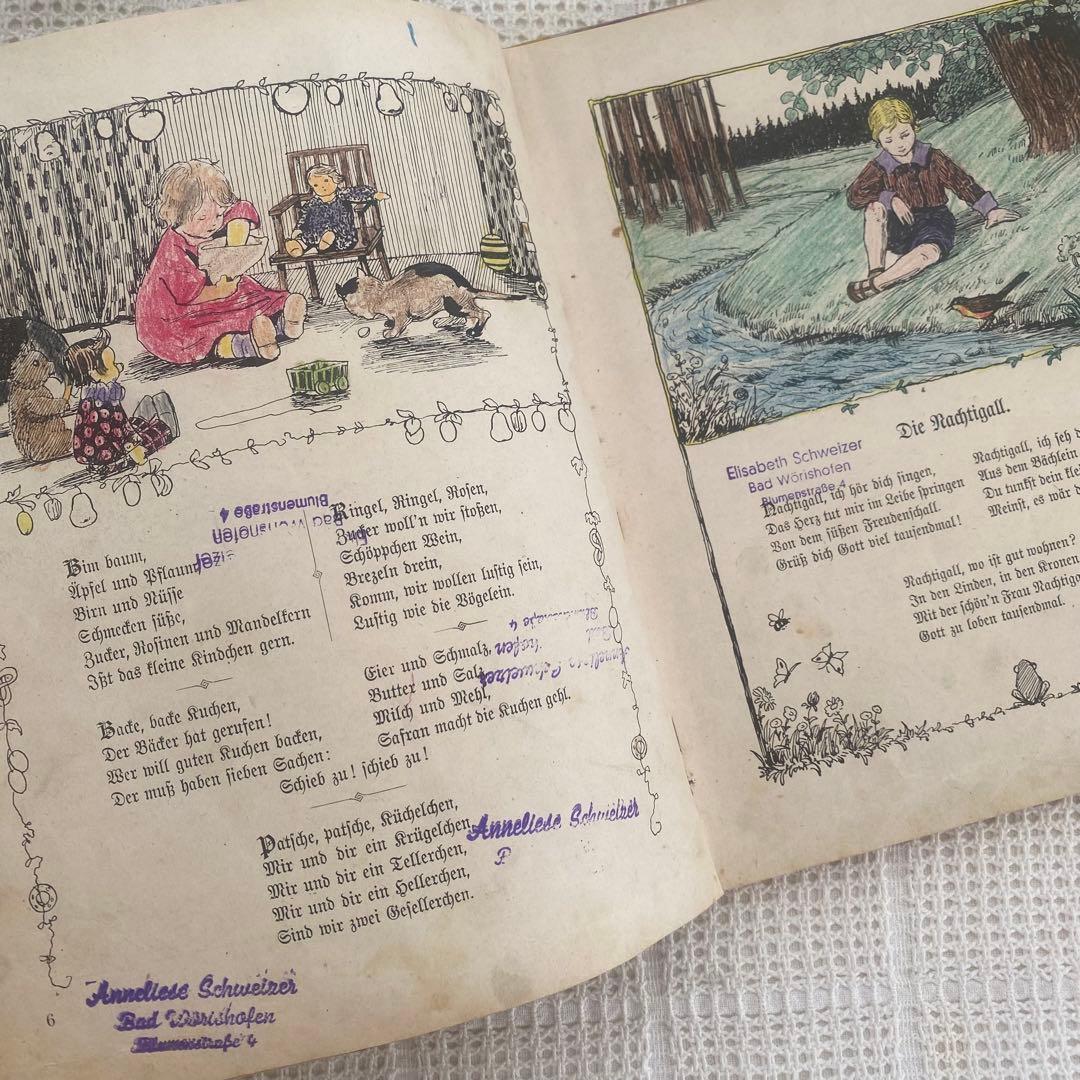 Bim baum,
Äpfel und Pflaum
Birn und Nüsse
Schmecken süße,
Zucker, Rosinen und Mandelkern
Ißt das kleine Kindchen gern.
Backe, backe Kuchen,
Der Bäcker hat gerufen!
Wer will guten Kuchen backen,
Der muß haben sieben Sachen:
Ringel, Ringel, Rosen,
Zucker woll'n wir stoßen,
Schöppchen Wein,
Brezeln drein,
Komm, wir wollen lustig sein,
Lustig wie die Vögelein.
Eier und Schmalz,
Butter und Salz,
Milch und Mehl,
Safran macht die Kuchen gehl.
Schieb zu! schieb zu!
Patsche, patsche, Küchelchen,
Mir und dir ein Krügelchen,
Mir und dir ein Tellerchen,
Mir und dir ein Hellerchen,
Sind wir zwei Gesellerchen.
Bad Wörishofen
Blumenstraße 4
Anneliese Schweizer
Bad
Blumenstraße 4
Anneliese Schweizer
Anneliese Schweizer
Bad Wörishofen
Blumenstraße 4
6
Die Nachtigall.
Elisabeth Schweizer
Bad Wörishofen
Blumenstraße 4
Nachtigall, ich hör dich singen,
Das Herz tut mir im Leibe springen
Von dem süßen Freudenschall.
Grüß dich Gott viel tausendmal!
Nachtigall, ich seh
Aus dem Bächlein
Du tunkst dein
Meinst, es wär
Nachtigall, wo ist gut wohnen?
In den Linden, in den Kronen
Mit der schön'n Frau Nachtigall
Gott zu loben tausendmal.